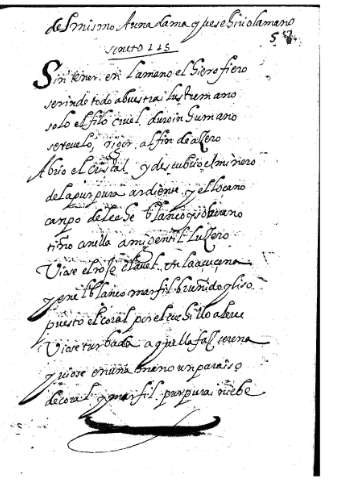 del mismo A una dama q̃ se hirio la mano
57
soneto 115
Sin tener en la mano el hierro fiero
serindo todo a vuestra ilustre mano
solo el filo cruel duro inhumano
se rigor al fin de açero
Abrio el cristal y descubrio el minero
de la purpura ardiente y el loçano
campo de leche blanco y soberano
tiño a mi gentil luzero
Viose el rojo clauel en la açuçena
y en el blanco marfil bruñido y liso
puesto el coral por el cuchillo aleue
Viose turbada aquella faz serena
y viose en una mano un paraiso
de coral y marfil purpura i niebe